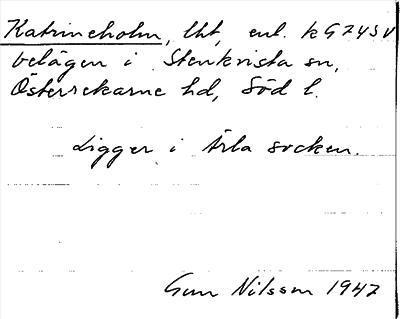 Katrineholm, lht, enl. k G 74 SV
belägen i Stenkvista sn,
Österrekarne hd, Söd l.
Ligger i Ärla socken.
Gun Nilsson 1947